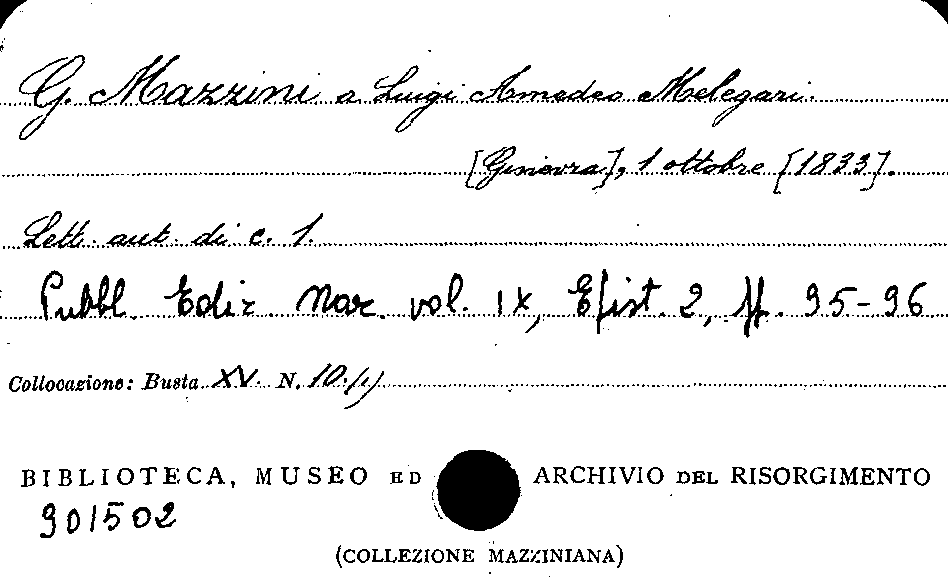 G. Mazzini a Luigi Amedeo Melegari.
[Ginevra], 1 ottobre [1833].
Lett. aut. di c. 1.
Pubbl. Ediz. Naz. vol. IX, Epist. 2, pp. 95-96
Collocazione: Busta XV. N. 10.(1)
BIBLIOTECA, MUSEO ED ARCHIVIO DEL RISORGIMENTO
901502
(COLLEZIONE MAZZINIANA)